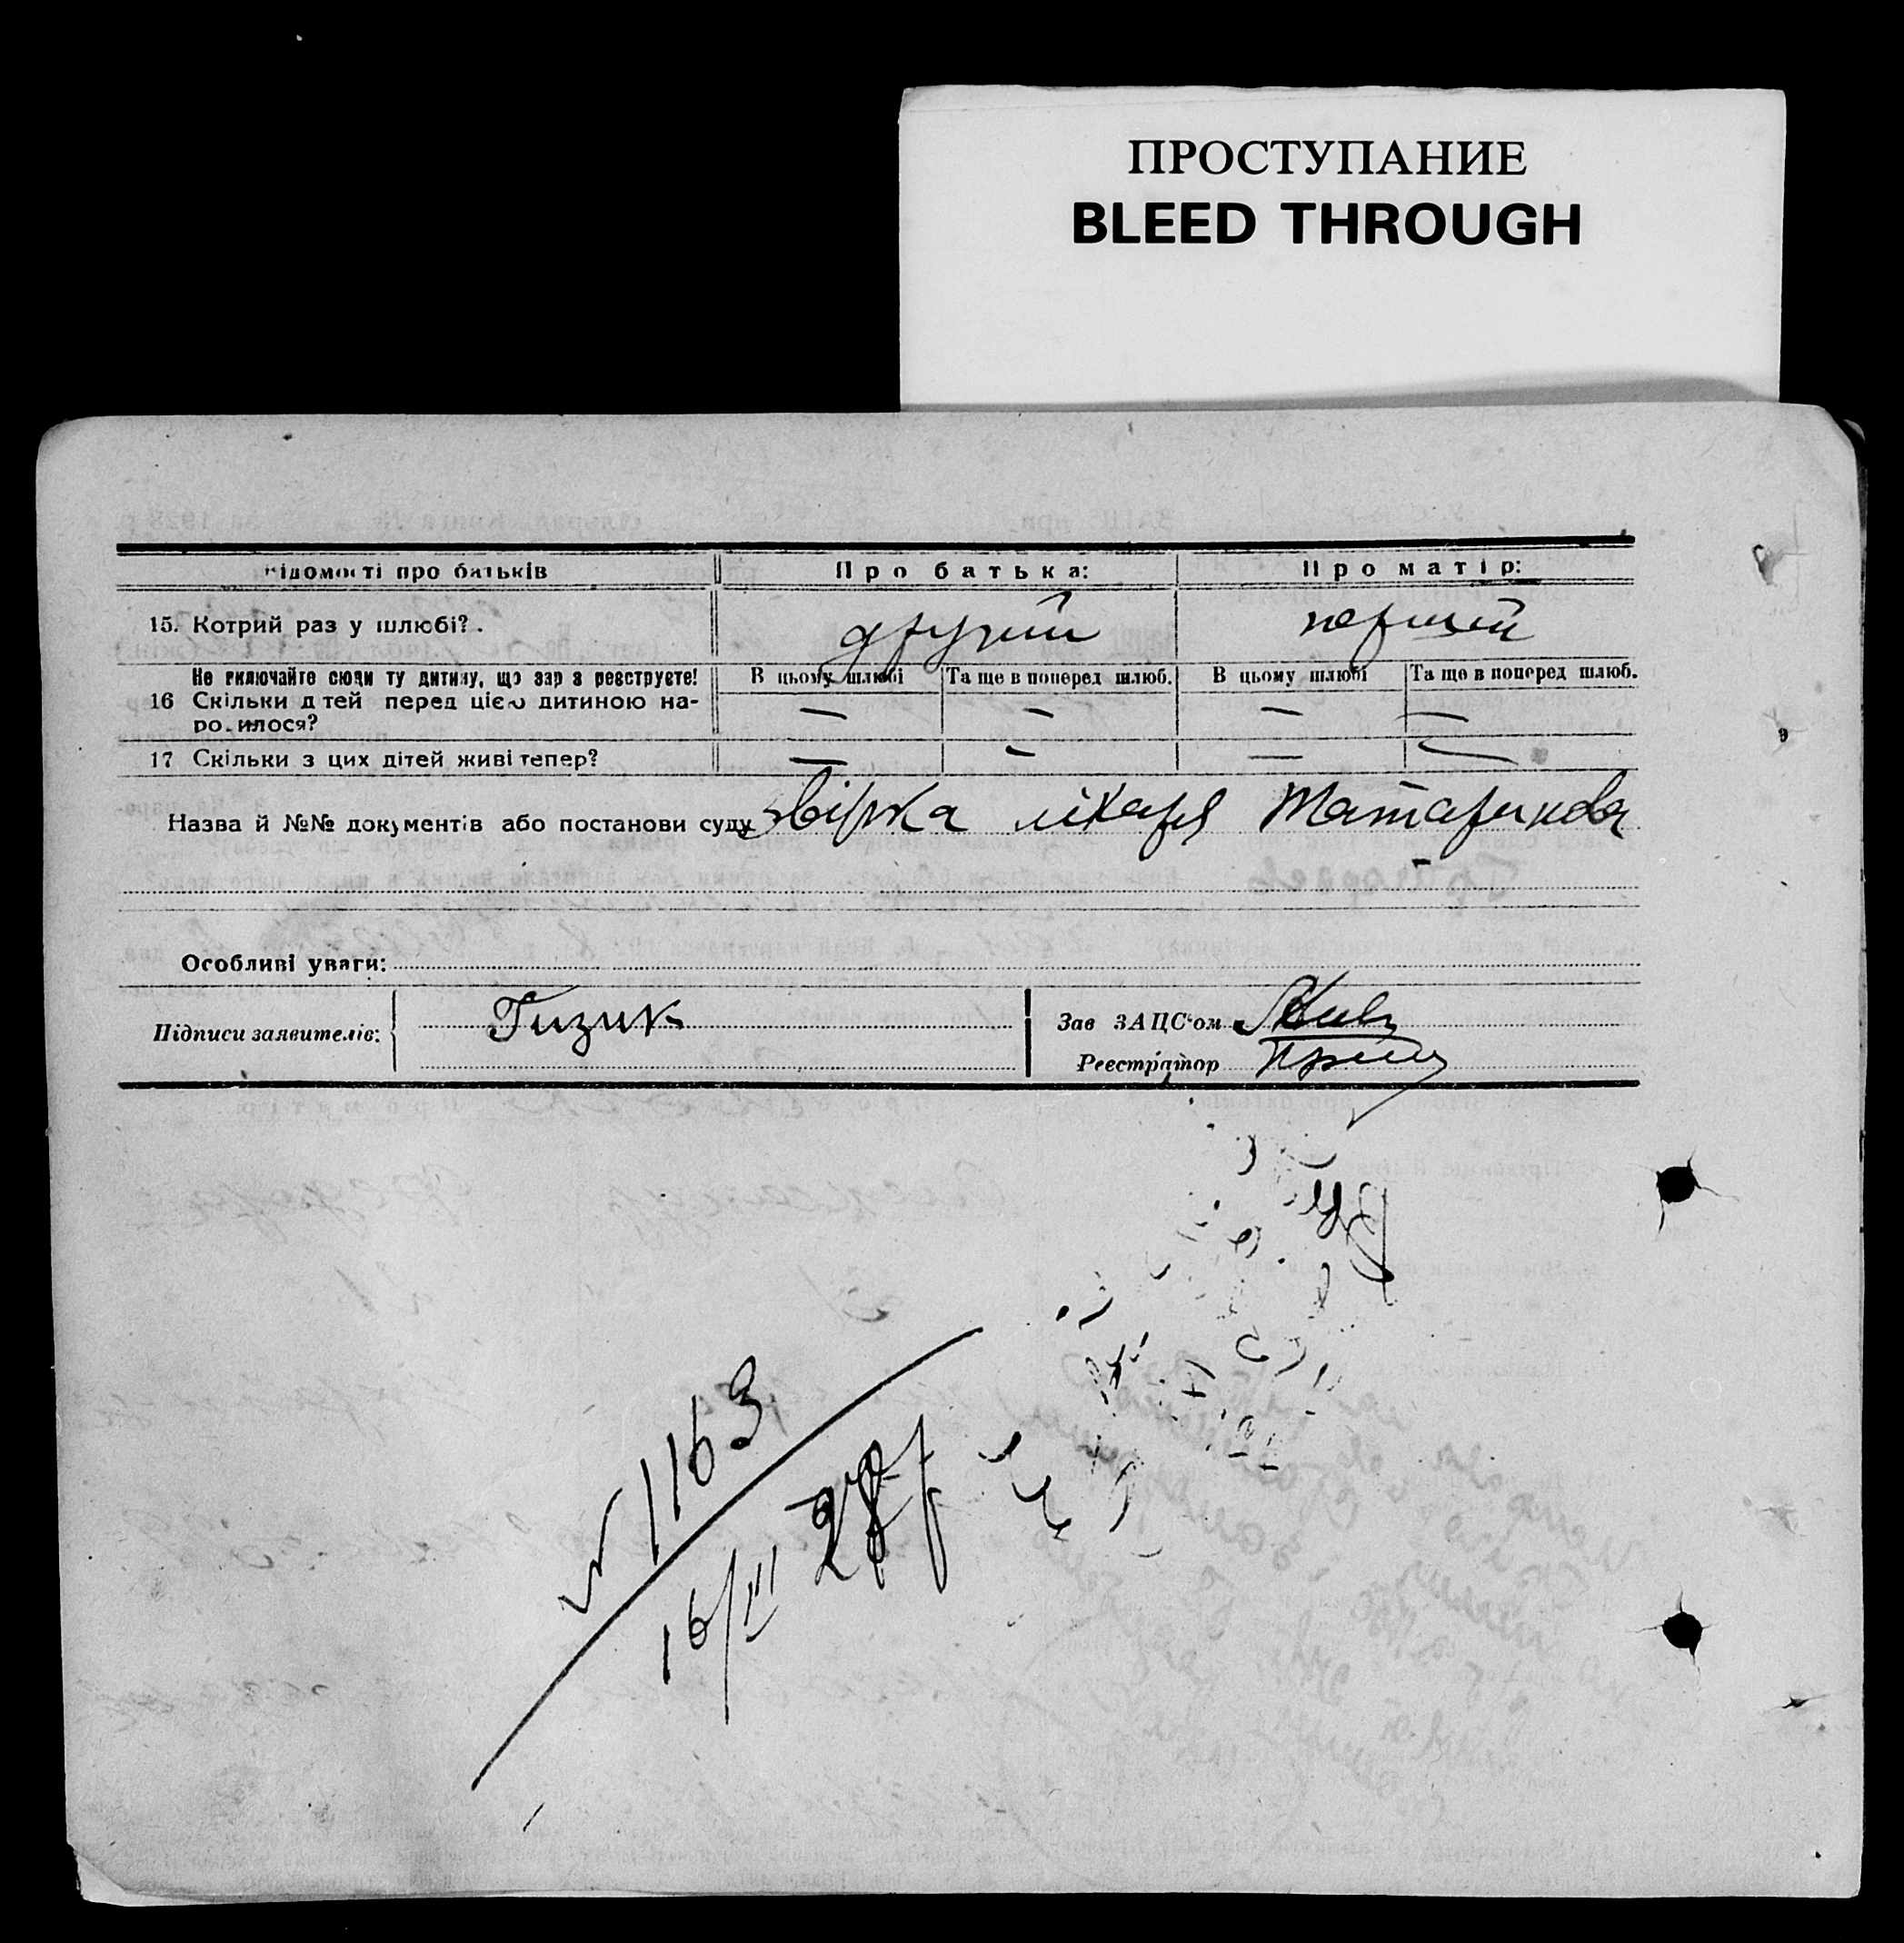 ПРОСТУПАНИЕ
BLEED THROUGH
відомості про батьків
Про батька:
Про матір:
15. Котрий раз у шлюбі?
другий
перший
Не включайте сюди ту дитину, що зараз реєструєте!
16 Скільки дітей перед цією дитиною на-
родилося?
В цьому шлюбі
Та ще в поперед шлюб.
В цьому шлюбі
Та ще в поперед шлюб.
— — — —
17 Скільки з цих дітей живі тепер?
— — — —
Назва й №№ документів або постанови суду звірка лікаря Татаринова
Особливі уваги:
Підписи заявителів:
Гизик
Зав ЗАЦС'ом
Реєстратор
N 1163
16/III 28 р